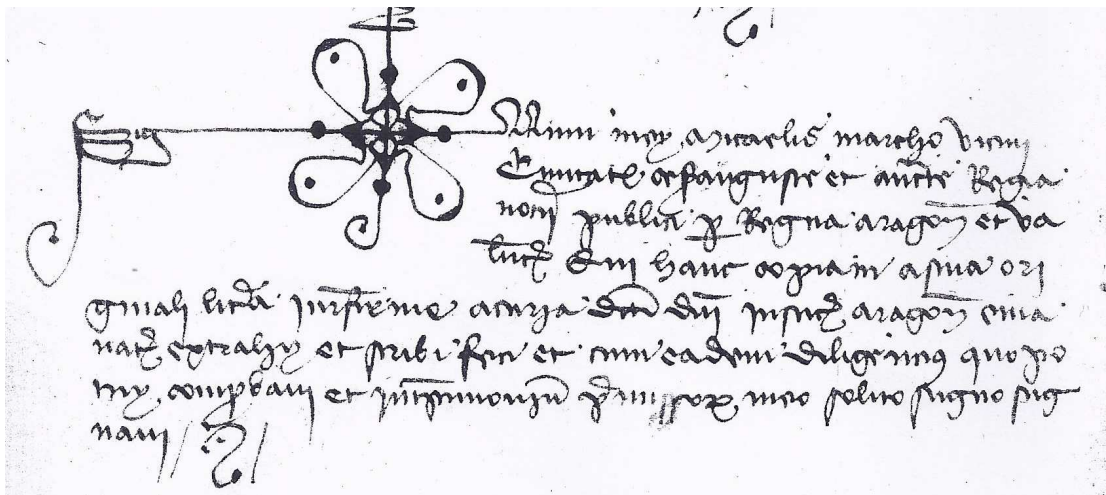 Sig num mey micaelis marcho vicini
Civitatis cesarauguste et aucte Regia
notarii publici per Regna aragon et va
lencie Qui hanc copiam a sua ori
ginali littera iurisfirme a curia dicti dni Justicie aragon ema
nata extrahy et scribi feci et cum eadem diligencius quo po
tuy comprobavi et in testimonium premissorum meo solito signo sig
navi